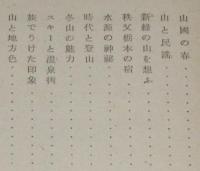 山國の春
山と民謠
新緑の山を想ふ
秩父栃本の宿
水源の神祕
時代と登山
冬山の魅力
スキーと温泉街
旅でうけた印象
山と地方色